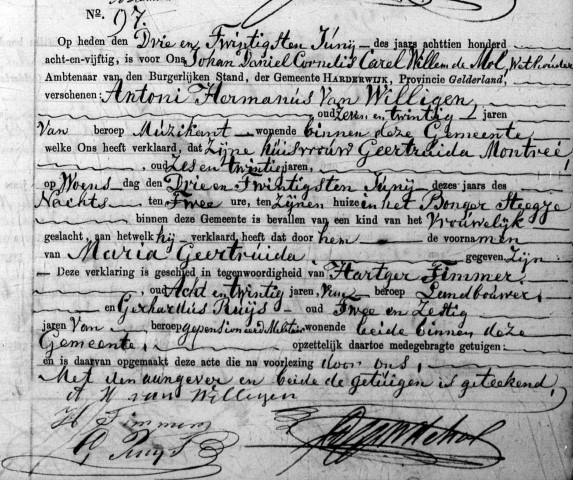 No. 97.
Op heden den Drie en Twintigsten Junij des jaars achttien honderd
acht-en-vijftig, is voor Ons Johan Daniel Cornelis Carel Willem de Mol, Wethouder
Ambtenaar van den Burgerlijken Stand, der Gemeente HARDERWIJK, Provincie Gelderland,
verschenen: Antoni Hermanus Van Willigen
oud Zeven en twintig jaren
Van beroep Muzikant wonende binnen deze Gemeente
welke Ons heeft verklaard, dat Zijne huisvrouw Geertruida Montreé,
oud Zes en twintig jaren,
op Woens dag den Drie en Twintigsten Junij dezes jaars des
Nachts ten Twee ure, ten Zijnen huize in het Bonger Steegje
binnen deze Gemeente is bevallen van een kind van het Vrouwelijk
geslacht, aan hetwelk hij verklaard, heeft dat door hem de voornamen
van Maria Geertruida gegeven Zijn
Deze verklaring is geschied in tegenwoordigheid van Hartger Timmer,
oud Acht en twintig jaren, Van beroep Landbouwer,
en Gerhardus Ruijs oud Twee en Zestig
jaren Van beroep gepensioneerd Militair wonende beide binnen deze
Gemeente, opzettelijk daartoe medegebragte getuigen:
en is daarvan opgemaakt deze acte die na voorlezing door ons,
Met den aangever en beide de getuigen is geteekend,
A H van Willigen
H Timmer
G Ruijs